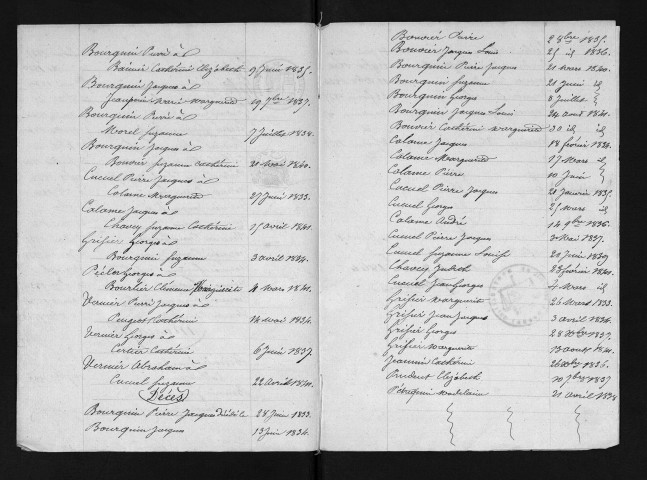 Bourquin Pierre à
Bainier Catherine Elizabeth 9 Juin 1835.
Bourquin Jaques à
Jeanperin Marie Marguerite 19 9bre 1837.
Bourquin Pierre à
Morel Suzanne 7 Juillet 1838.
Bourquin Jaques à
Bouvier Suzanne Catherine 20 Mai 1840.
Cucuel Pierre Jacques à
Colame Marguerite 27 Juin 1833.
Colame Jacques à
Chavey Suzanne Catherine 15 avril 1841.
Grisier Georges à
Bourquin Suzanne 3 avril 1834.
Georges à
Bourlier Clémence 4 Mars 1841.
Vernier Pierre Jacques à
Peugeot Catherine 14 Mai 1834.
Vernier Georges à
Certier Catherine 6 Juin 1837.
Vernier Abraham à
Cucuel Suzanne 22 avril 1841.
Décès
Bourquin Pierre Jacques 28 Juin 1833.
Bourquin Jacques 13 Juin 1834.
Bouvier Pierre 2 8bre 1835.
Bouvier Jacques Louis 25 id 1836.
Bourquin Pierre Jacques 21 Mars 1840.
Bourquin Suzanne 21 Juin id
Bourquin Georges 8 Juillet
Bourquin Jacques Louis 24 août 1841.
Bouvier Catherine Marguerite 30 id id
Colame Jacques 18 février 1834.
Colame Marguerite 17 Mars id
Colame Pierre 10 Juin
Cucuel Pierre Jacques 21 Janvier 1835.
Cucuel Georges 25 Mars id
Colame André 14 9bre 1836.
Cucuel Pierre Jacques 3 Mai 1837.
Cucuel Suzanne Louise 20 Juin 1839
Chavey Judith 23 février 1841.
Cucuel Jean Georges 4 Mars id
Grisier Marguerite 26 Mars 1833.
Grisier Jean Jacques 3 avril 1834.
Grisier Georges 28 1837.
Grisier Marguerite 13 août 1841.
Jeannin Catherine 26 1836.
Prudent Elizabeth 10 7bre 1837
Madelaine 21 avril 1834